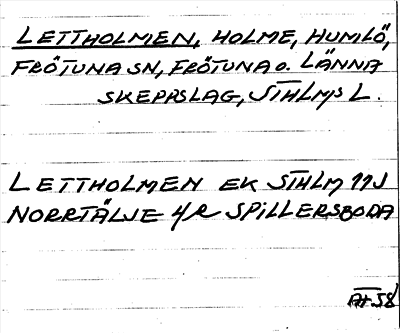 LETTHOLMEN, HOLME, HUMLÖ,
FRÖTUNA SN, FRÖTUNA O. LÄNNA
SKEPPSLAG, STHLMS L.
LETTHOLMEN EK STHLM 11J
NORRTÄLJE 4/R SPILLERSBODA